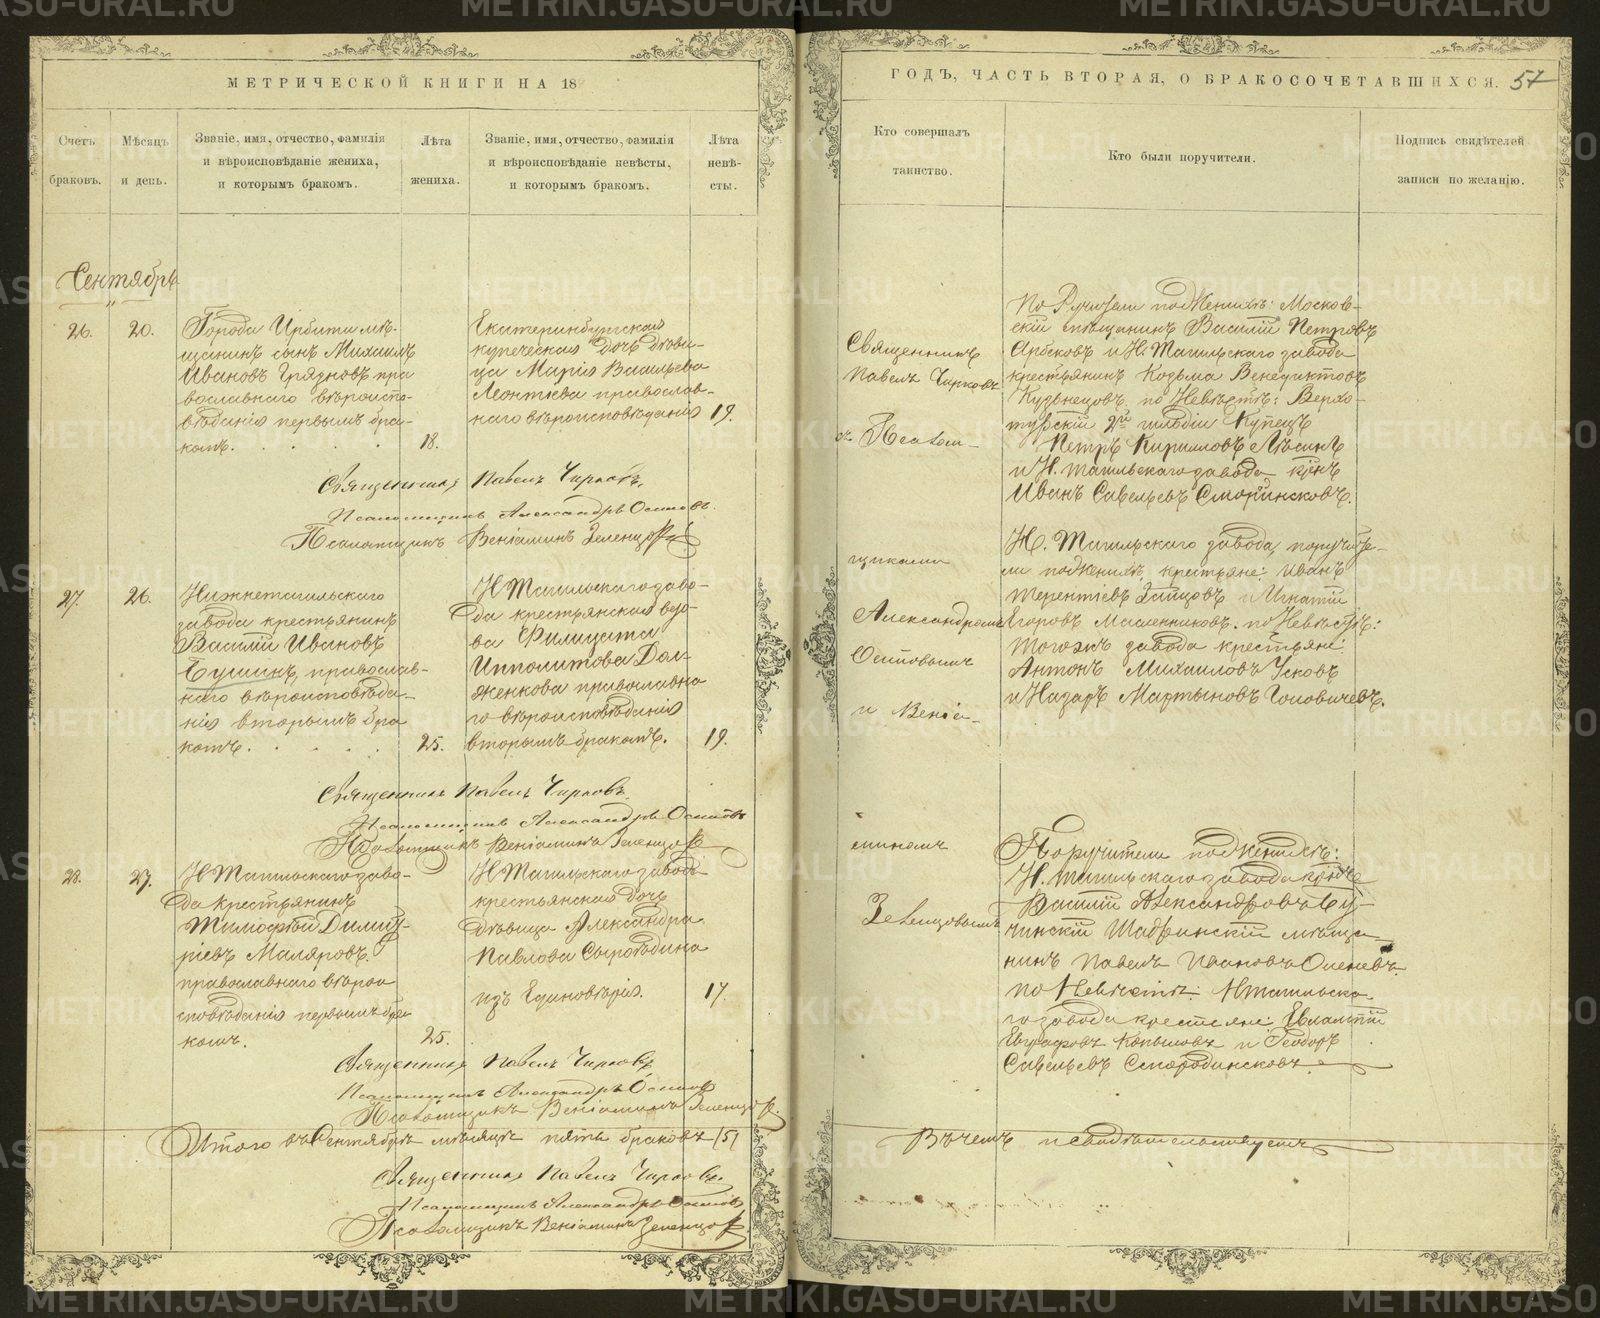 МЕТРИЧЕСКОЙ КНИГИ НА 18
Счетъ браковъ.
Мѣсяцъ и день.
Званіе, имя, отчество, фамилія
и вѣроисповѣданіе жениха,
и которымъ бракомъ.
Лѣта жениха.
Званіе, имя, отчество, фамилія
и вѣроисповѣданіе невѣсты,
и которымъ бракомъ.
Лѣта невѣ-
сты.
Сентябрь
26.
20.
Города Ирбити мѣ-
щанинъ сынъ Михаилъ
Ивановъ Грязновъ пра
вославнаго вѣроиспо-
вѣданія первымъ бра-
комъ.
18.
Екатеринбургская
купеческая дочь дѣви-
ца Марія Васильева
Леонтьева православ-
наго вѣроисповѣданія
19.
Священникъ Павелъ Чирковъ.
Псаломщикъ Александръ Осиповъ.
Псаломщикъ Веніаминъ Зеленцовъ
27.
26.
Нижнетагильскаго
завода крестьянинъ
Василій Ивановъ
Бушинъ, православ-
наго вѣроисповѣда-
нія вторымъ бра
комъ.
25.
НТагильскаго заво-
да крестьянская вдо-
ва Филицата
Ипполитова Дол-
женкова православна
го вѣроисповѣданія
вторымъ бракомъ.
19.
Священникъ Павелъ Чирковъ.
Псаломщикъ Александръ Осиповъ
Псаломщикъ Веніаминъ Зеленцовъ
28.
27.
НТагильскаго заво-
да крестьянинъ
Тимофей Димит-
ріевъ Маляровъ.
православнаго вѣрои
сповѣданія первымъ бра
комъ.
25.
НТагильскаго завода
крестьянская дочь
дѣвица Александра
Павлова Сыропядина
изъ Единовѣрія.
17.
Священникъ Павелъ Чирковъ
Псаломщикъ Александръ Осиповъ
Псаломщикъ Веніаминъ Зеленцовъ.
Итого въ Сентябрѣ мѣсяцѣ пять браковъ (5)
Священникъ Павелъ Чирковъ.
Псаломщикъ Александръ Осиповъ
Псаломщикъ Веніаминъ Зеленцовъ
ГОДЪ, ЧАСТЬ ВТОРАЯ, О БРАКОСОЧЕТАВШИХСЯ.
57
Кто совершалъ
таинство.
Кто были поручители.
Подпись свидѣтелей
записи по желанію.
Священникъ
Павелъ Чирковъ
съ Псалом-
щиками
Александромъ
Осиповымъ
и Веніа-
миномъ
Зеленцовымъ
Поручители по Женихѣ: Москов-
скій мѣщанинъ Василій Петровъ
Арбековъ и Н. Тагильскаго завода
крестьянинъ Козьма Венедиктовъ
Кузнецовъ. по Невѣстѣ: Верхо-
турскій 2й гильдіи Купецъ
Петръ Кирилловъ Лѣсинъ
и Н. Тагильскаго завода крѣнъ
Иванъ Савельевъ Сморинсковъ.
Н. Тагильскаго завода, поручите-
ли по Женихѣ, крестьяне: Иванъ
Терентіевъ Зайцовъ и Игнатій
Егоровъ Масленниковъ. по Невѣстѣ:
тогожъ завода крестьяне:
Антонъ Михаиловъ Усковъ
и Назаръ Мартыновъ Головичевъ.
Поручители по Женихѣ:
Н. Тагильскаго завода крѣне
Василій Александровъ Су-
чинскій Шадринскій мѣща-
нинъ Павелъ Ивановъ Оленевъ.
по Невѣстѣ: НТагильска-
го завода крестьяне: Евлампій
Евграфовъ Копыловъ и Ѳеодоръ
Савельевъ Смородинсковъ.
Въ чемъ и свидѣтельствуемъ
METRIKI.GASO-URAL.RU